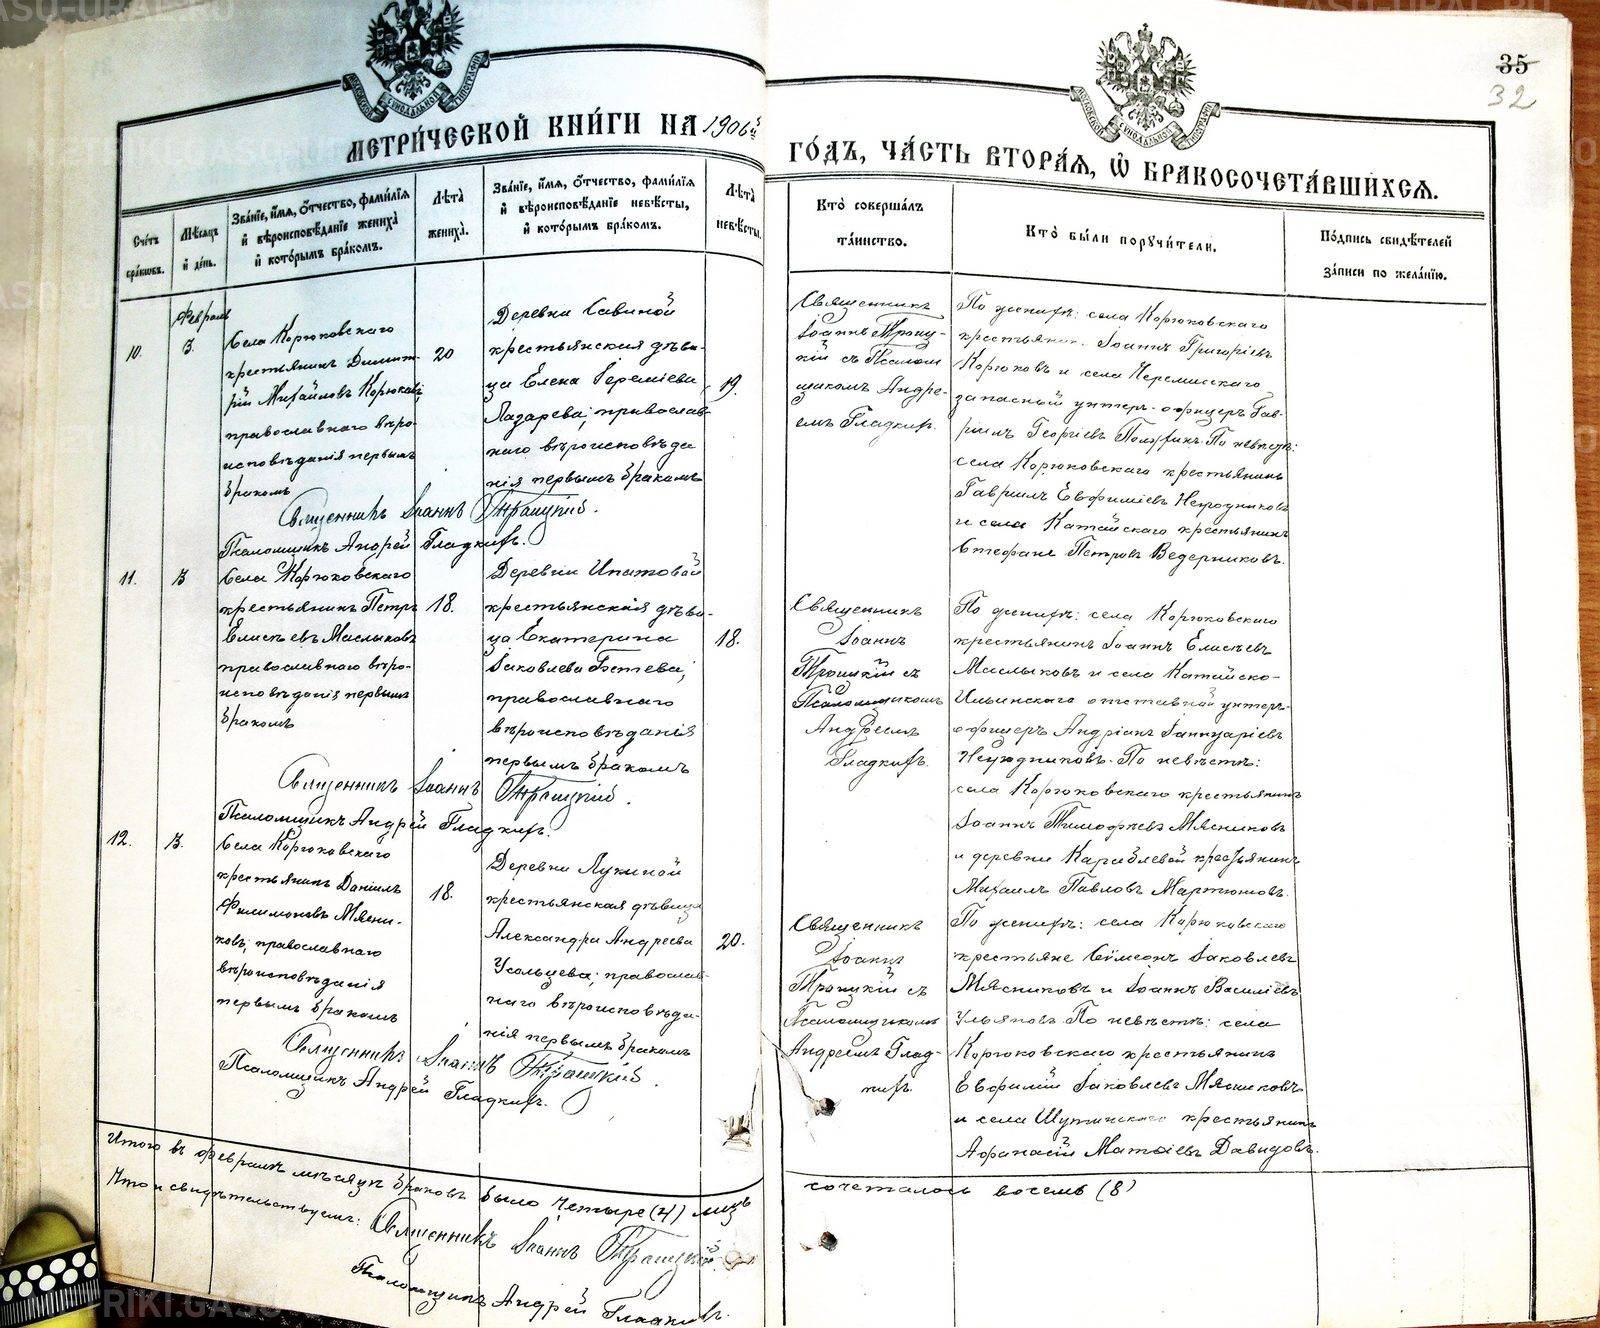 35
32
МЕТРИЧЕСКОЙ КНИГИ НА 1906й
ГОДЪ, ЧАСТЬ ВТОРАЯ, Ѡ БРАКОСОЧЕТАВШИХСЯ.
Счетъ браковъ.
Мѣсяцъ и день.
Званіе, имя, отчество, фамилія
и вѣроисповѣданіе жениха
и которымъ бракомъ.
Лѣта
жениха.
Званіе, имя, отчество, фамилія
и вѣроисповѣданіе невѣсты,
и которымъ бракомъ.
Лѣта
невѣсты.
Кто совершалъ
таинство.
Кто были поручители.
Подпись свидѣтелей
записи по желанію.
Февраль
10.
3.
Села Корюковскаго
крестьянинъ Димит-
рій Михайловъ Корюковъ
православнаго вѣро-
исповѣданія первымъ
бракомъ
20
Деревни Савиной
крестьянская дѣви-
ца Елена Іереміева
Лазарева; православ-
наго вѣроисповѣда
нія первымъ бракомъ
19.
Священникъ
Іоаннъ Троиц-
кій съ Псалом
щикомъ Андре-
емъ Гладкихъ.
По женихѣ: села Корюковскаго
крестьянин. Іоаннъ Григоріевъ
Корюковъ и села Черемисскаго
запасный унтеръ-офицеръ Гав-
ріилъ Георгіевъ По невѣстѣ:
села Корюковскаго крестьянинъ
Гавріилъ Евфиміевъ Неуродниковъ
и села Катайскаго крестьянинъ
Стефанъ Петровъ Ведерниковъ.
Священникъ Іоаннъ Троицкій.
Псаломщикъ Андрей Гладкихъ.
11.
3
Села Корюковскаго
крестьянинъ Петръ
Елисѣевъ Маслыковъ
православнаго вѣро-
исповѣданія первымъ
бракомъ
18.
Деревни Ипатовой
крестьянская дѣви-
ца Екатерина
Іаковлева Бетева;
православнаго
вѣроисповѣданія
первымъ бракомъ
18.
Священникъ
Іоаннъ
Троицкій съ
Псаломщикомъ
Андреемъ
Гладкихъ.
По женихѣ: села Корюковскаго
крестьянинъ Іоаннъ Елисѣевъ
Маслыковъ и села Катайско-
Ильинскаго отставной унтеръ-
офицеръ Андріанъ Іаннуаріевъ
Неуродниковъ. По невѣстѣ:
села Корюковскаго крестьянинъ
Іоаннъ Тимофѣевъ Мясниковъ
и деревни Караблевой крестьянинъ
Михаилъ Павловъ Мартюшовъ.
Священникъ Іоаннъ Троицкій.
Псаломщикъ Андрей Гладкихъ.
12.
3.
Села Корюковскаго
крестьянинъ Даніилъ
Филимоновъ Мясни-
ковъ; православнаго
вѣроисповѣданія
первымъ бракомъ
18.
Деревни Лукиной
крестьянская дѣвица
Александра Андреева
Усольцева; православ-
наго вѣроисповѣда-
нія первымъ бракомъ
20.
Священникъ
Іоаннъ
Троицкій съ
Псаломщикомъ
Андреемъ Глад-
кихъ.
По женихѣ: села Корюковскаго
крестьяне Сѵмеонъ Іаковлевъ
Мясниковъ и Іоаннъ Василіевъ
Ульяновъ. По невѣстѣ: села
Корюковскаго крестьянинъ
Евфимій Іаковлевъ Мясниковъ
и села Шутинскаго крестьянинъ
Афанасій Матѳіевъ Давидовъ.
Священникъ Іоаннъ Троицкій.
Псаломщикъ Андрей Гладкихъ.
Итого въ февралѣ мѣсяцѣ браковъ было четыре (4) лицъ
сочеталось восемь (8)
Что и свидѣтельствуемъ: Священникъ Іоаннъ Троицкій.
Псаломщикъ Андрей Гладкихъ.